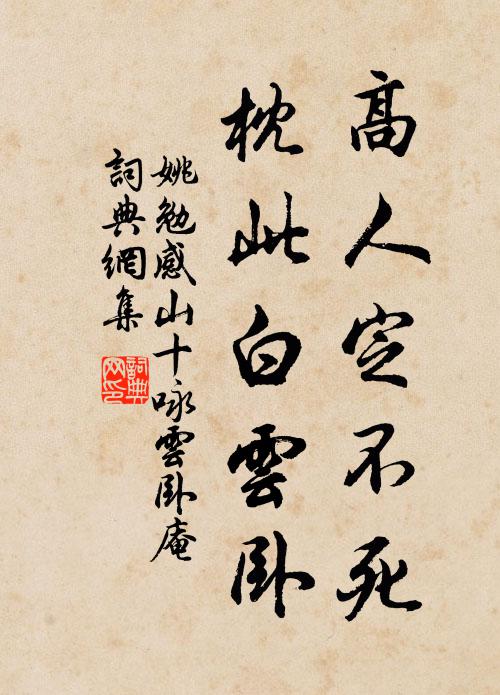 高人定不死
枕此白雲卧
姚勉感山十咏雲卧庵
詞典網集
詞典網印